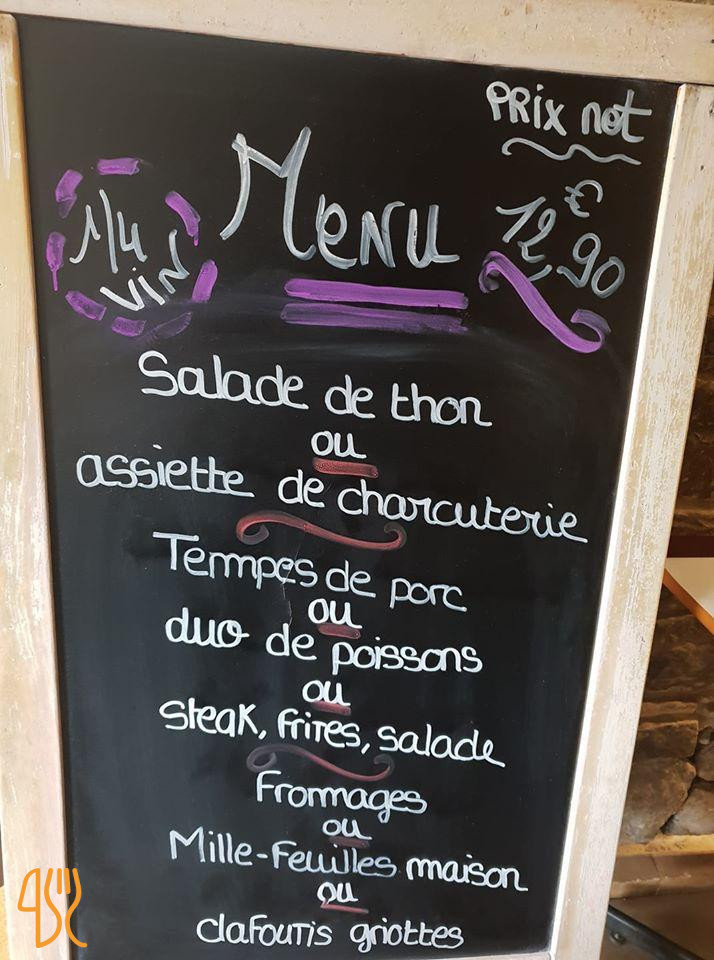 PRix net
Menu
1/4
ViN
12,90 €
Salade de thon
ou
assiette de charcuterie
Tempes de porc
ou
duo de poissons
ou
Steak, frites, salade
Fromages
ou
Mille-Feuilles maison
ou
clafoutis griottes